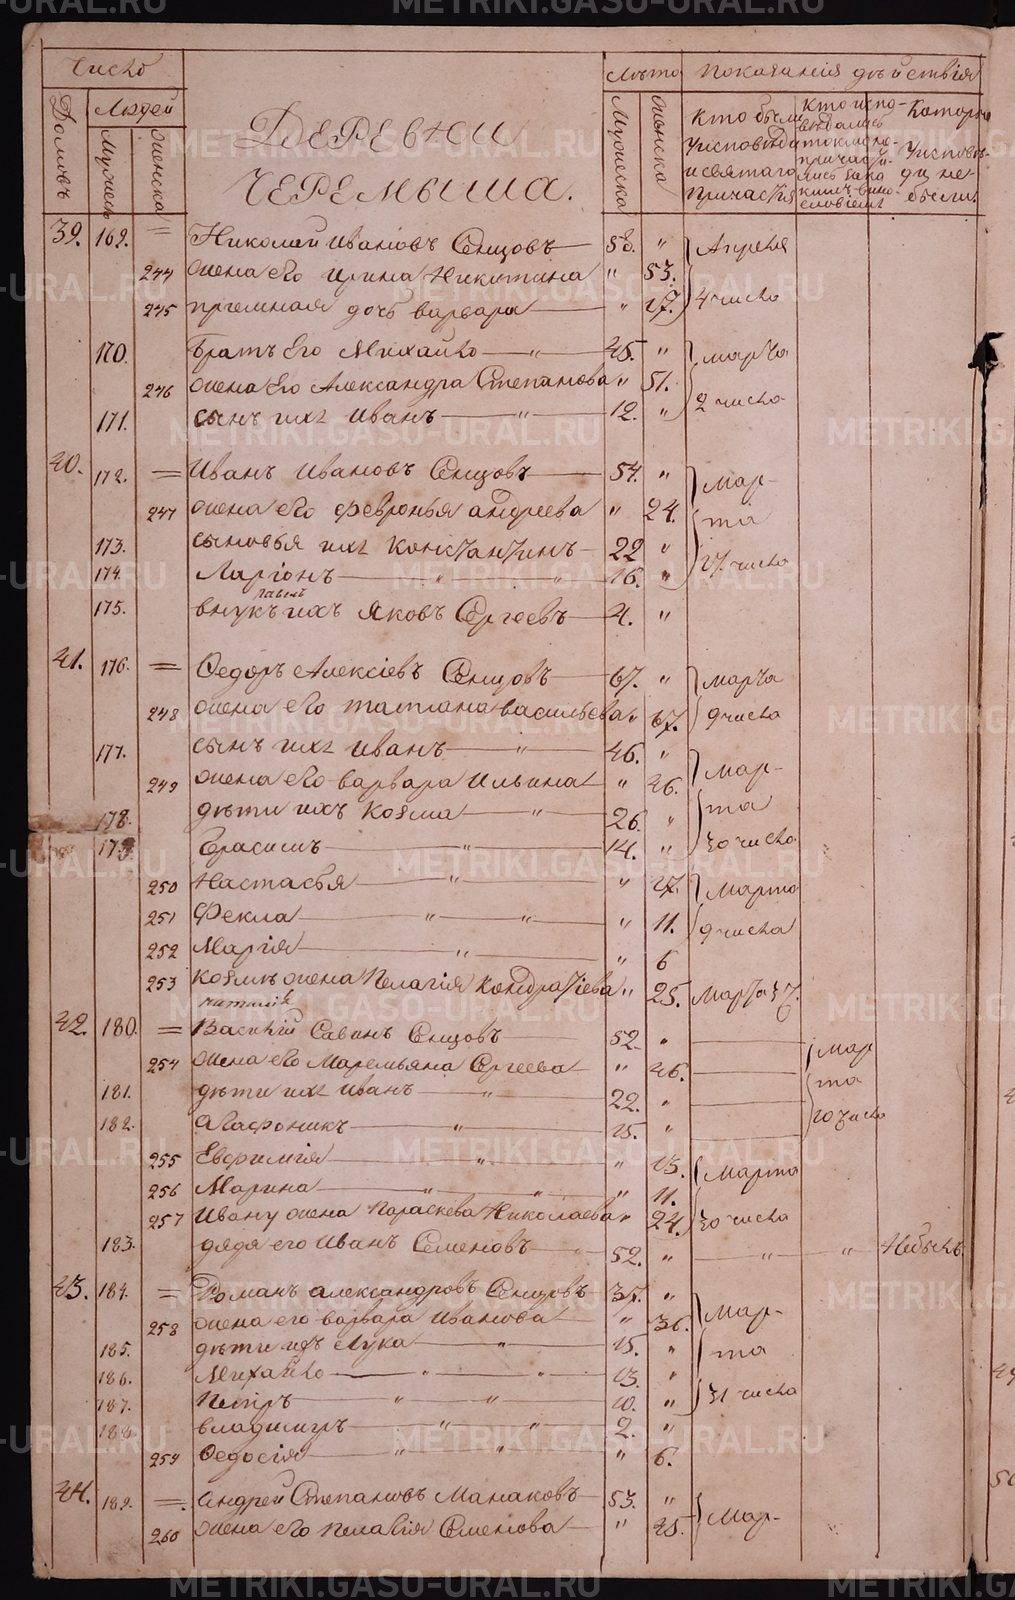 Число
Лѣта
Показанія дѣйствія
Домовъ
Людей
Мужеск
Женска
ДЕРЕВНИ
ЧЕРЕМЫША.
Мужеска
Женска
Кто были у исповѣди и святаго причастія
Кто исповѣдались токмо не причасти-
Которые у исповѣди не были.
39. 169. = Николай Ивановъ Сенцовъ — 58. "
244 жена его Ирина Никитина " 53.
245 приемная дочь Варвара — " 17.
Апреля
4 числа
170. Братъ его Михайло — " — 45. "
246 жена его Александра Степанова " 51.
171. сынъ ихъ Иванъ — " — 12. "
марта
2 числа
40. 172. = Иванъ Ивановъ Сенцовъ — 54. "
247 жена его Февронья Андреева " 24.
173. сыновья ихъ Константинъ — 22 "
174. Ларіонъ — " — " 16. "
175. внукъ ихъ Яковъ Сергеевъ — 4. "
мар-
та
27 числа
41. 176. = Федоръ Алексіевъ Сенцовъ — 67. "
248 жена его Татіана Васильева " 67.
марта
9 числа
177. сынъ ихъ Иванъ — " — 46. "
249 жена его Варвара Ильина — " 46.
178. дѣти ихъ Козма — " 26. "
179. Герасимъ — " — 14. "
мар-
та
30 числа
250 Настасья — " — " 17.
251 Фекла — " — " — " 11.
252 Марія — " — " 6
марта
9 числа
253 Козмы жена Пелагія Кондратіева " 25. Марта 37.
42. 180. = Василій Савинъ Сенцовъ — 52. "
254 жена его Маремьяна Сергеева " 46.
181. дѣти ихъ Иванъ — " — 22. "
182. Агафоникъ — " — 15. "
мар
та
20 числа
255 Евфимія — " — " 13.
256 Марина — " — " — " 11.
257 Ивану жена Параскева Николаева " 24.
марта
30 числа
183. дядя его Иванъ Семеновъ — 52. " — " — " Небылъ.
43. 184. = Романъ Александровъ Сенцовъ 37. "
258 жена его Варвара Иванова — " 36.
185. дѣти ихъ Лука — " — 15. "
186. Михайло — " — " — 13. "
187. Петръ — " — " — 10. "
188. Владимиръ — " — " — 2. "
259 Федосія — " — " — " 6.
мар-
та
31 числа
44. 189. = Андрей Степановъ Манаковъ — 53. "
260 жена его Пелагія Семенова — " 45.
мар-
METRIKI.GASO-URAL.RU